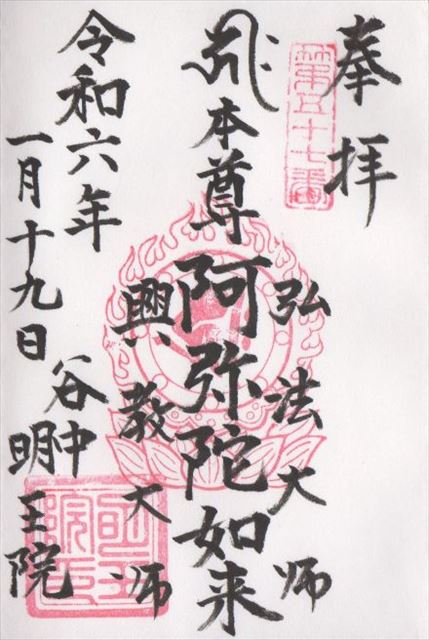 奉拝
第五十七番
弘法大師
本尊阿弥陀如来
興教大師
令和六年
一月十九日
谷中
明王院